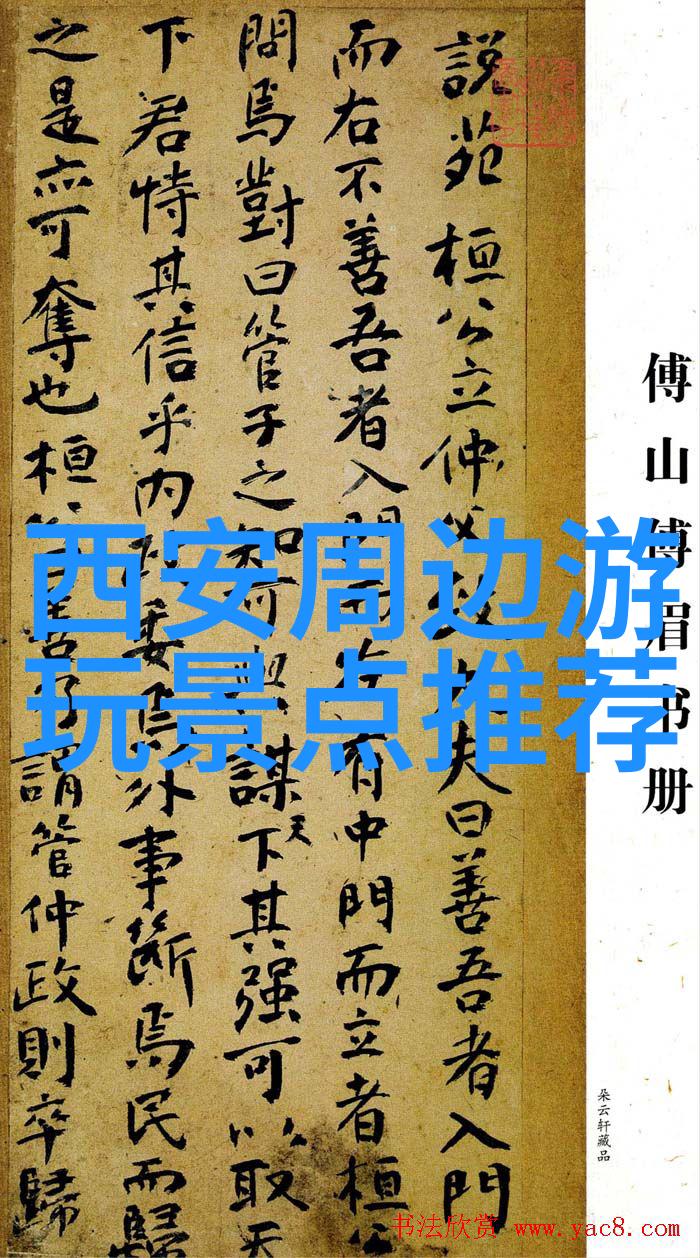 西安周边游
玩景点推荐
傅山傅眉书册
朵云轩藏品
説苑 桓公立仲父致大夫曰善吾者入門
而右不善吾者入門而左有中門而立者桓公
問焉對曰管子之知可與謀天下其强可以取天
下君恃其信乎内政委焉外事斷焉民而歸
之是亦可奪也桓公曰善乃謂管仲政則卒歸
书法欣赏 www.yac8.com